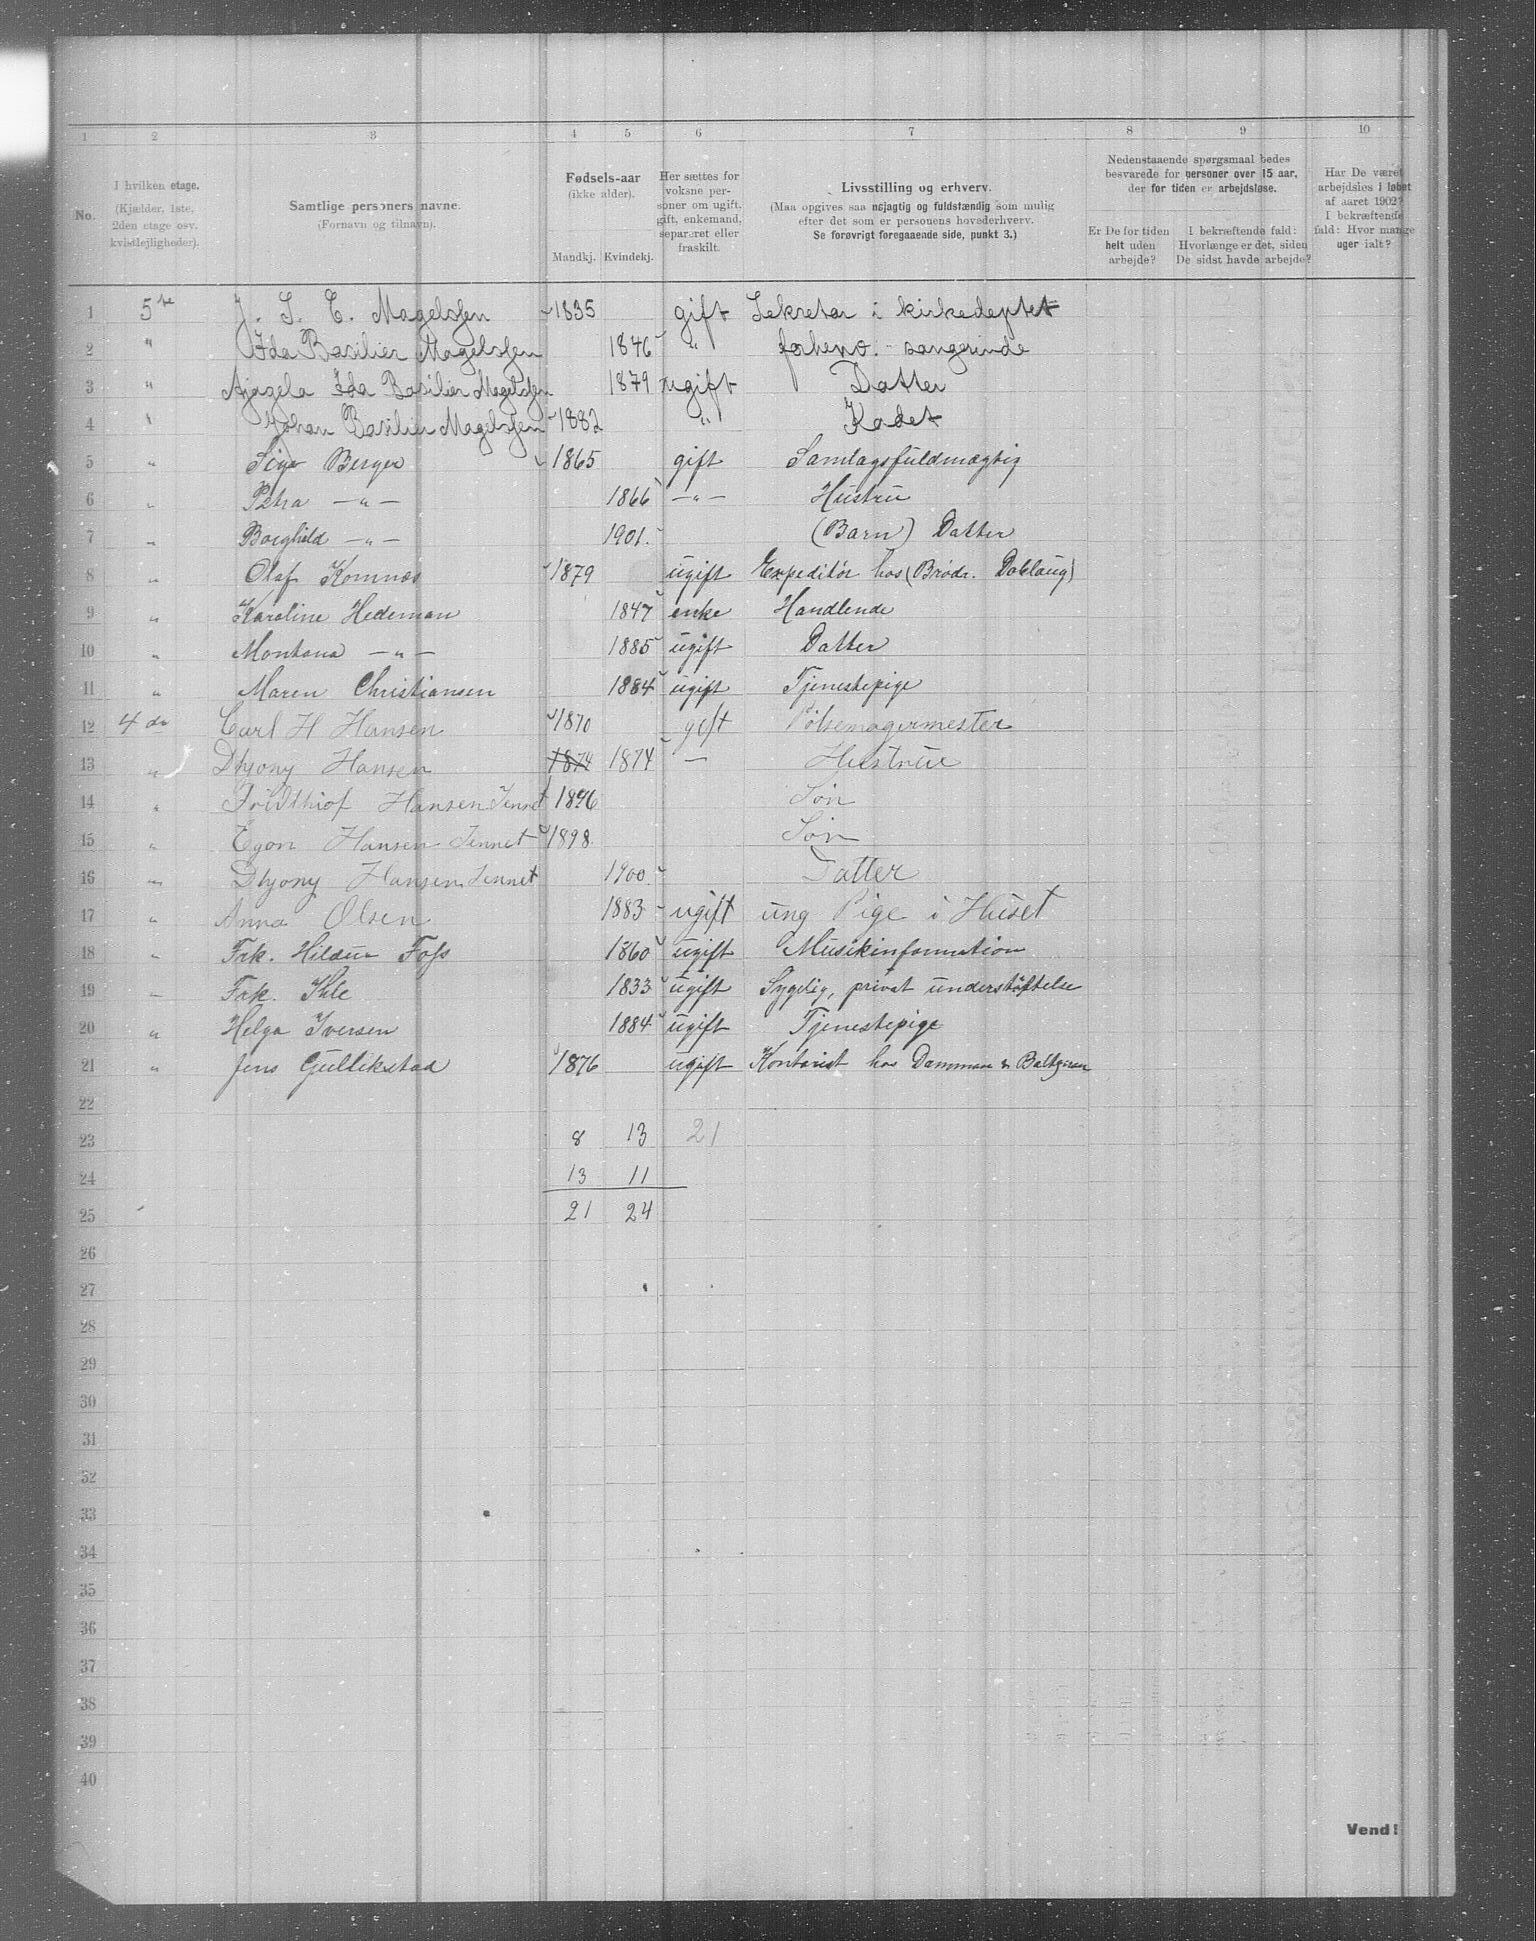 1 2 3 4 5 6 7 8 9 10
No.
I hvilken etage.
(Kjælder, 1ste,
2den etage osv.
kvistlejligheder).
Samtlige personers navne.
(Fornavn og tilnavn).
Fødsels-aar
(ikke alder).
Mandkj. Kvindekj.
Her sættes for
voksne per-
soner om ugift,
gift, enkemand,
separeret eller
fraskilt.
Livsstilling og erhverv.
(Maa opgives saa nøjagtig og fuldstændig som mulig
efter det som er personens hovederhverv.
Se forøvrigt foregaaende side, punkt 3.)
Nedenstaaende spørgsmaal bedes
besvarede for personer over 15 aar,
der for tiden er arbejdsløse.
Er De for tiden
helt uden
arbejde?
I bekræftende fald:
Hvorlænge er det, siden
De sidst havde arbejde?
Har De været
arbejdsløs i løbet
af aaret 1902?
I bekræftende
fald: Hvor mange
uger ialt?
1 5te J. S. C. Magelssen 1835 gift Sekretær i kirkedeptet
2 " Ida Basilier Magelssen 1846 " forhenv. - sangerinde
3 " Ida Basilier Magelssen 1879 ugift Datter
4 " Johan Basilier Magelssen 1882 " Kadet
5 " Berger 1865 gift Samlagsfuldmægtig
6 " Petra —"— 1866 —"— Hustru
7 " Borghild —"— 1901 (Barn) Datter
8 " Olaf Komnæs 1879 ugift Expeditør hos (Brødr. Dobloug)
9 " Karoline Hedeman 1847 enke Handlende
10 " Montana —"— 1885 ugift Datter
11 " Maren Christiansen 1884 ugift Tjenestepige
12 4de Carl H Hansen 1870 gift Pølsemagermester
13 " Hansen 1874 1874 — Hustrue
14 " Fridthiof Hansen Jennet 1896 Søn
15 " Egon Hansen Jennet 1898 Søn
16 " Hansen Jennet 1900 Datter
17 " Anna Olsen 1883 ugift ung Pige i Huset
18 " Frk. Hildur Foss 1860 ugift Musikinformation
19 — Frk. Ihle 1833 ugift Sygelig, privat understøttelse
20 " Helga Iversen 1884 ugift Tjenestepige
21 " Jens Gullikstad 1876 ugift Kontorist hos Damman &
22
23 8 13 21
24 13 11
25 21 24
26
27
28
29
30
31
32
33
34
35
36
37
38
39
40
Vend!